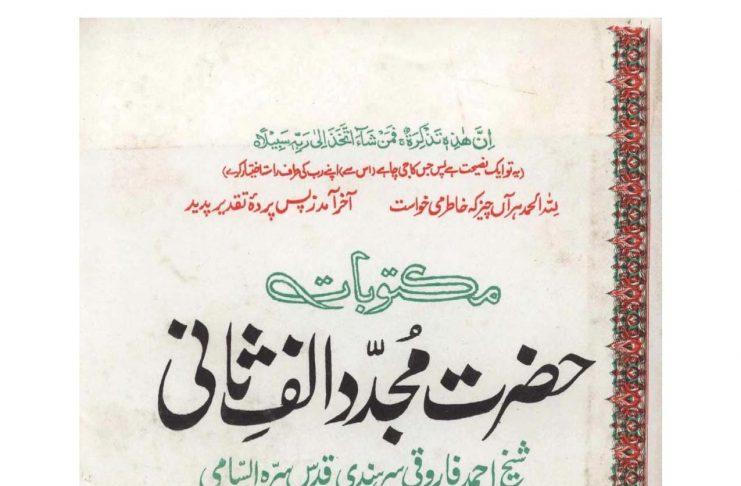 اِنَّ هٰذِهٖ تَذْكِرَةٌ ۚ فَمَنْ شَآءَ اتَّخَذَ اِلٰى رَبِّهٖ سَبِيْلًاہ
(یہ تو ایک نصیحت ہے پس جس کا جی چاہے (اس سے) اپنے رب کی طرف راستہ اختیار کرے)
للہ الحمد ہر آں چیز کہ خاطر می خواست آخر آمد ز پس پردۂ تقدیر پدید
مکتوبات
حضرت مجُدّد الفِ ثانی
شیخ احمد فاروقی سرہندی قدس سرہ السامی